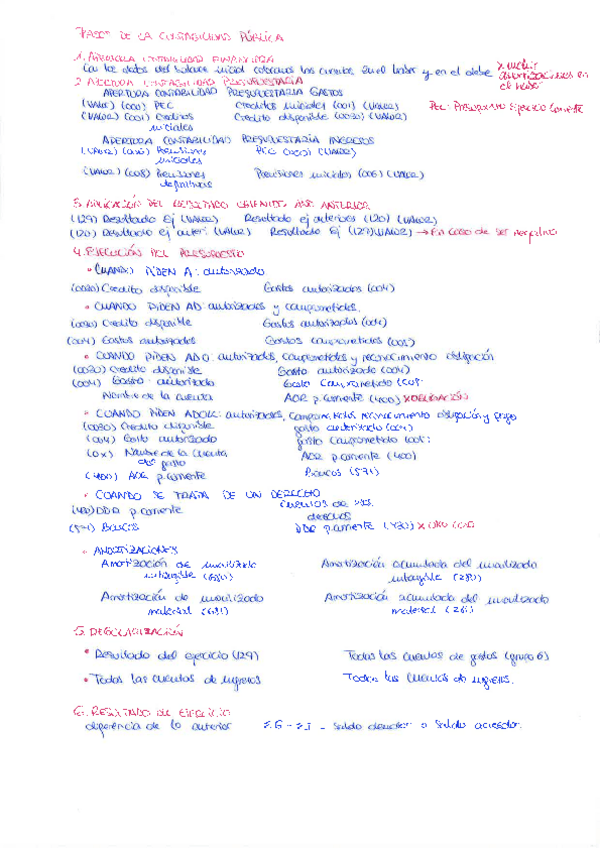 PASOS DE LA CONTABILIDAD PÚBLICA
1. APERTURA CONTABILIDAD FINANCIERA
Con los datos del balance inicial colocamos las cuentas en el haber y en el debe x incluir amortizaciones en el haber
2. APERTURA CONTABILIDAD PRESUPUESTARIA
APERTURA CONTABILIDAD PRESUPUESTARIA GASTOS
(VALOR) (000) PEC Creditos iniciales (001) (VALOR) PEC: Presupuesto Ejercicio Corriente
(VALOR) (001) Creditos iniciales Credito disponible (0030) (VALOR)
APERTURA CONTABILIDAD PRESUPUESTARIA INGRESOS
(VALOR) (006) Previsiones iniciales PEC (000) (VALOR)
(VALOR) (008) Previsiones definitivas Previsiones iniciales (006) (VALOR)
3. APLICACIÓN DEL RESULTADO OBTENIDO AÑO ANTERIOR
(129) Resultado Ej (VALOR) Resultado ej anteriores (120) (VALOR)
(120) Resultado ej anteri. (VALOR) Resultado Ej (129) (VALOR) → En caso de ser negativo
4. EJECUCIÓN DEL PRESUPUESTO
• CUANDO PIDEN A: autorizado
(0030) Credito disponible Gastos autorizados (004)
• CUANDO PIDEN AD: autorizados y comprometidos.
(0030) Credito disponible Gastos autorizados (004)
(004) Gastos autorizados Gastos comprometidos (005)
• CUANDO PIDEN ADO: autorizados, comprometidos y reconocimiento obligación
(0030) Credito disponible Gasto autorizado (004)
(004) Gasto autorizado Gasto Comprometido (005)
Nombre de la cuenta AOR p. corriente (400) x OBLIGACIÓN
• CUANDO PIDEN ADOK: autorizados, comprometidos reconocimiento obligación y pago
(0030) Credito disponible gasto autorizado (004)
(004) Gasto autorizado gasto comprometido (005)
(0x) Nombre de la cuenta de gasto AOR p. corriente (400)
(400) AOR p. corriente Bancos (571)
• CUANDO SE TRATA DE UN DERECHO
(430) DDR p. corriente
(571) Bancos DDR p. corriente (430)
• AMORTIZACIONES
Amortización de inmovilizado intangible (680) Amortización acumulada del inmovilizado intangible (280)
Amortización de inmovilizado material (681) Amortización acumulada del inmovilizado material (281)
5. REGULARIZACIÓN
• Resultado del ejercicio (129) Todas las cuentas de gastos (grupo 6)
• Todas las cuentas de ingresos Todas las cuentas de ingresos.
6. RESULTADO DE EJERCICIO
diferencia de lo anterior Σ G - Σ I - Saldo deudor o Saldo acreedor.